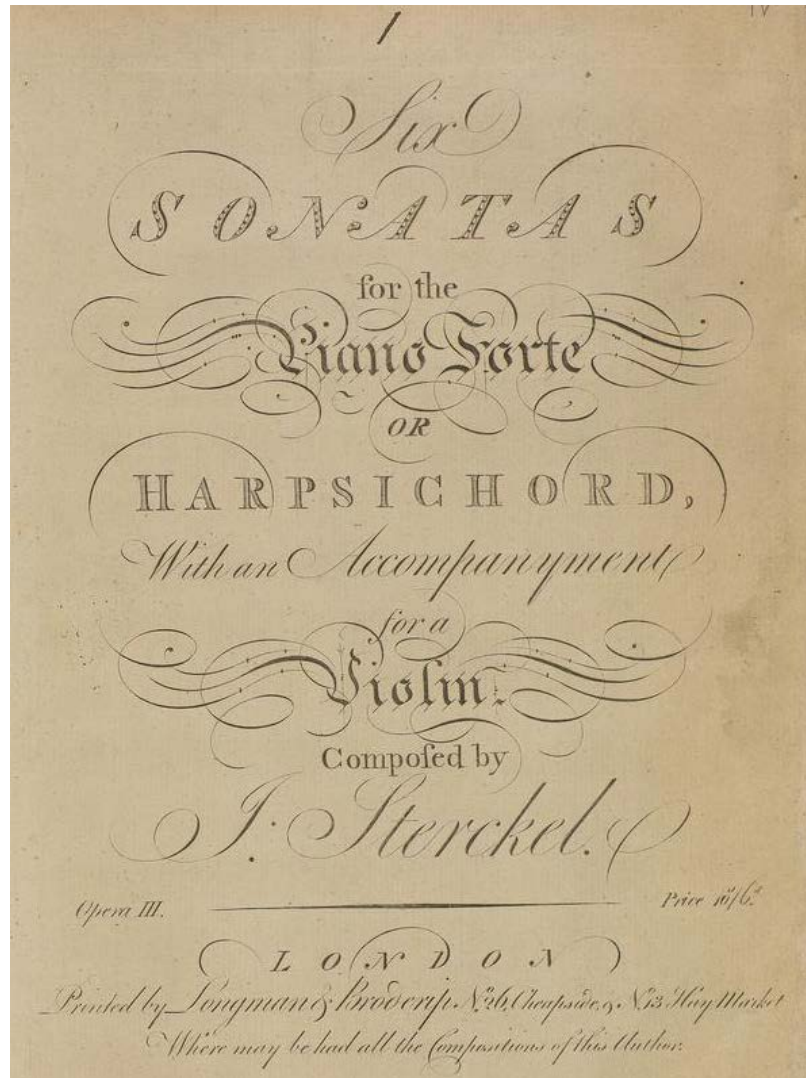 1
IV
Six
SONATAS
for the
Piano Forte
OR
HARPSICHORD,
With an Accompanyment
for a
Violin.
Compoſed by
J. Sterckel.
Opera III. Price 10/6.d
LONDON
Printed by Longman & Broderip No. 26, Cheapside, & No. 13 Hay Market
Where may be had all the Compositions of this Author.